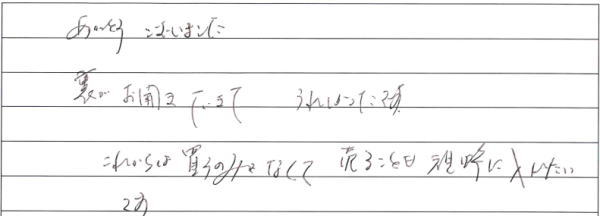 ありがとうございました
裏が お聞き できて うれしかったです
これからは買うのみでなくて 売ることも視野に入れたい
です